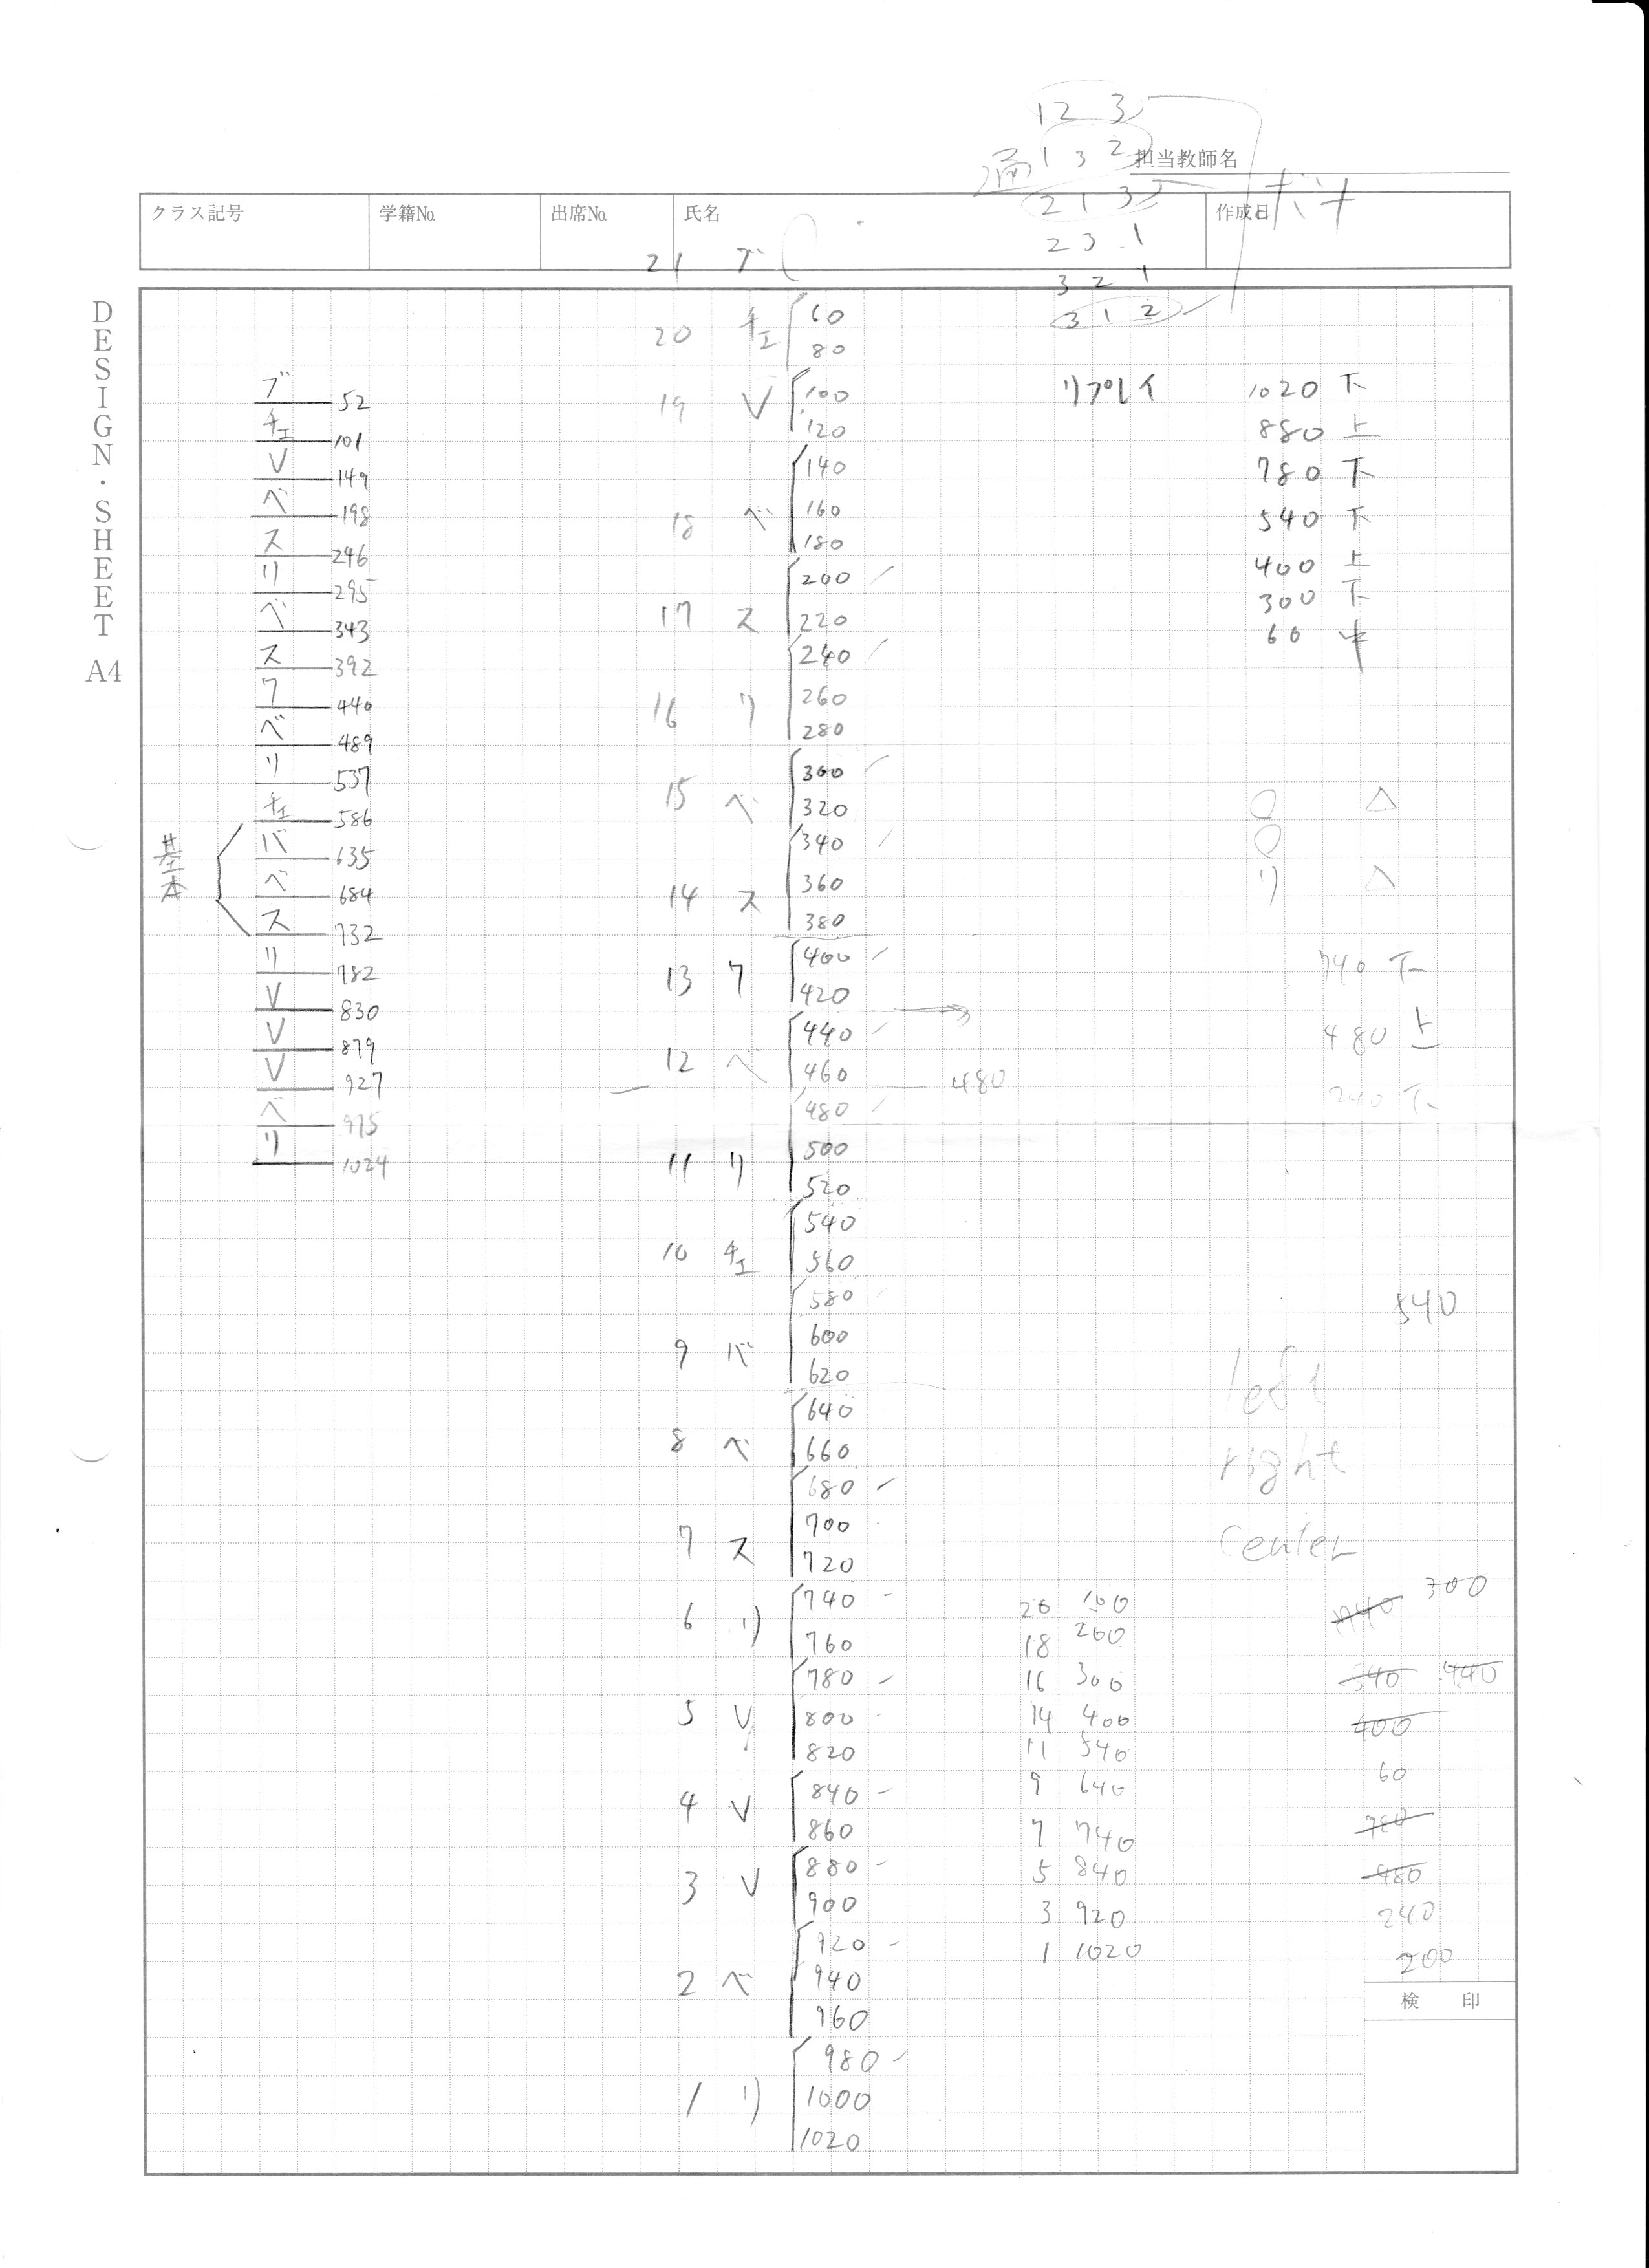 1 2 3
通 1 3 2 担当教師名
2 1 3 ボナ
クラス記号 学籍No. 出席No. 氏名 作成日
2 3 1
21 ブ
3 2 1
3 1 2
DESIGN・SHEET A4
ブ 52
チェ 101
V 149
ベ 198
ス 246
リ 295
ベ 343
ス 392
ワ 440
ベ 489
リ 537
チェ 586
基本
バ 635
ベ 684
ス 732
リ 782
V 830
V 879
V 927
ベ 975
リ 1024
20 チェ 60
80
19 V 100
120
18 ベ 140
160
180
17 ス 200
220
16 リ 240
260
280
15 ベ 300
320
14 ス 340
360
380
13 ワ 400
420
12 ベ 440
460 480
11 リ 480
500
520
10 チェ 540
560
9 バ 580
600
620
8 ベ 640
660
7 ス 680
700
720
6 リ 740
760
5 V 780
800
820
4 V 840
860
3 V 880
900
2 ベ 920
940
960
1 リ 980
1000
1020
リプレイ 1020 下
880 上
780 下
540 下
400 上
300 下
60 中
○ △
○
リ △
740 下
480 上
240 下
540
left
right
center
20 100
18 200
16 300
14 400
11 540
9 640
7 740
5 840
3 920
1 1020
300
540 440
400
60
780
480
240
200
検 印